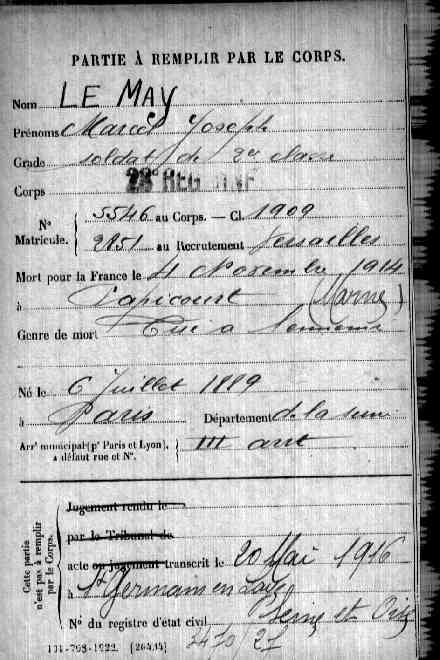 PARTIE À REMPLIR PAR LE CORPS.
Nom LE MAY
Prénoms Marcel Joseph
Grade soldat de 2e classe
Corps 28e REG INF
Nº Matricule. 5546 au Corps. — Cl. 1909
2151 au Recrutement Versailles
Mort pour la France le 4 Novembre 1914
à (Marne)
Genre de mort Tué à l'ennemi
Né le 6 Juillet 1889
à Paris Département de la Seine
Arrt municipal (pr Paris et Lyon), à défaut rue et Nº. III arrt
Cette partie n'est pas à remplir par le Corps.
Jugement rendu le
par le Tribunal de
acte ou jugement transcrit le 20 Mai 1916
à St Germain en Laye
Seine et Oise
Nº du registre d'état civil
3470/27
131-708-1922. [26434]